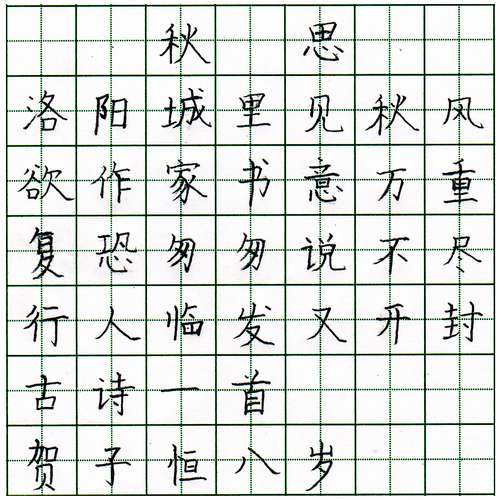 秋思
洛阳城里见秋风
欲作家书意万重
复恐匆匆说不尽
行人临发又开封
古诗一首
贺子恒八岁